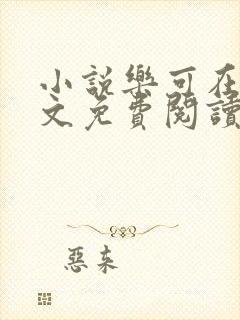 小說樂可在
文免費閱讀
惡來